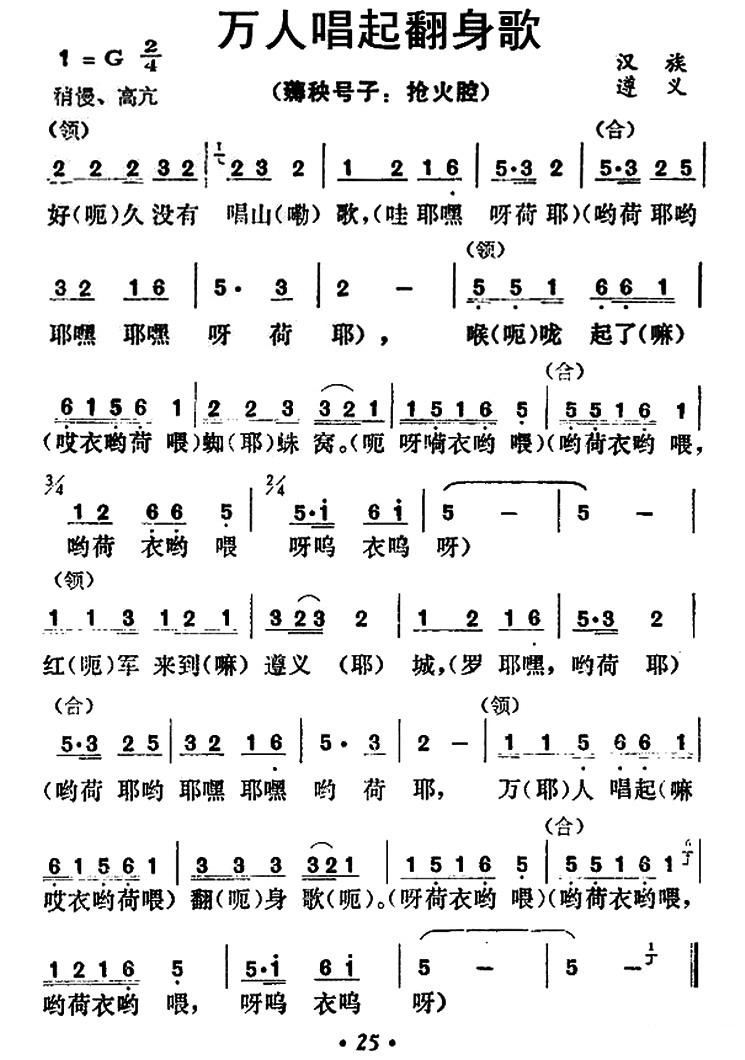 万人唱起翻身歌
1 = G 2/4 汉 族
稍慢、高亢 (薅秧号子：抢火腔) 遵 义
(领) (合)
2 2 2 3 2 | 2 3 2 | 1 2 1 6 | 5·3 2 | 5·3 2 5 |
好(呃)久没有 唱山(嘞)歌,(哇耶嘿 呀荷耶)(哟荷耶哟
(领)
3 2 1 6 | 5· 3 | 2 — | 5 5 1 6 6 1 |
耶嘿 耶嘿 呀 荷 耶)， 喉(呃)咙 起了(嘛)
(合)
6 1 5 6 1 | 2 2 3 3 2 1 | 1 5 1 6 5 | 5 5 1 6 1 |
(哎衣哟荷 喂)蜘(耶)蛛 窝。(呃 呀嗬衣哟 喂)(哟荷衣哟 喂,
3/4 1 2 6 6 5 | 2/4 5·i 6 i | 5 — | 5 — |
哟荷 衣哟 喂 呀呜 衣呜 呀)
(领)
1 1 3 1 2 1 | 3 2 3 2 | 1 2 1 6 | 5·3 2 |
红(呃)军 来到(嘛) 遵义 (耶) 城,(罗 耶嘿, 哟荷 耶)
(合) (领)
5·3 2 5 | 3 2 1 6 | 5· 3 | 2 — | 1 1 5 6 6 1 |
(哟荷 耶哟 耶嘿 耶嘿 哟 荷 耶, 万(耶)人 唱起(嘛
(合)
6 1 5 6 1 | 3 3 3 3 2 1 | 1 5 1 6 5 | 5 5 1 6 1 |
哎衣哟荷喂) 翻(呃)身 歌(呃)。(呀荷衣哟 喂)(哟荷衣哟喂,
1 2 1 6 5 | 5·i 6 i | 5 — | 5 — ‖
哟荷衣哟 喂, 呀呜 衣呜 呀)
· 25 ·